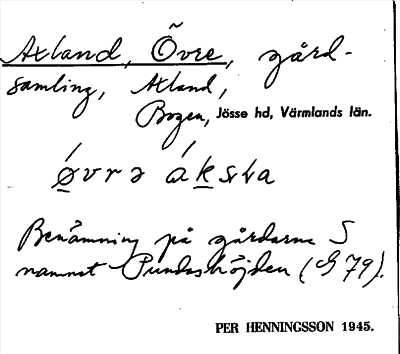 Axland, Övre, gård-
samling, Axland,
Bogen, Jösse hd, Värmlands län.
Benämning på gårdarna S
namnet Pundashöjden (G 79).
PER HENNINGSSON 1945.